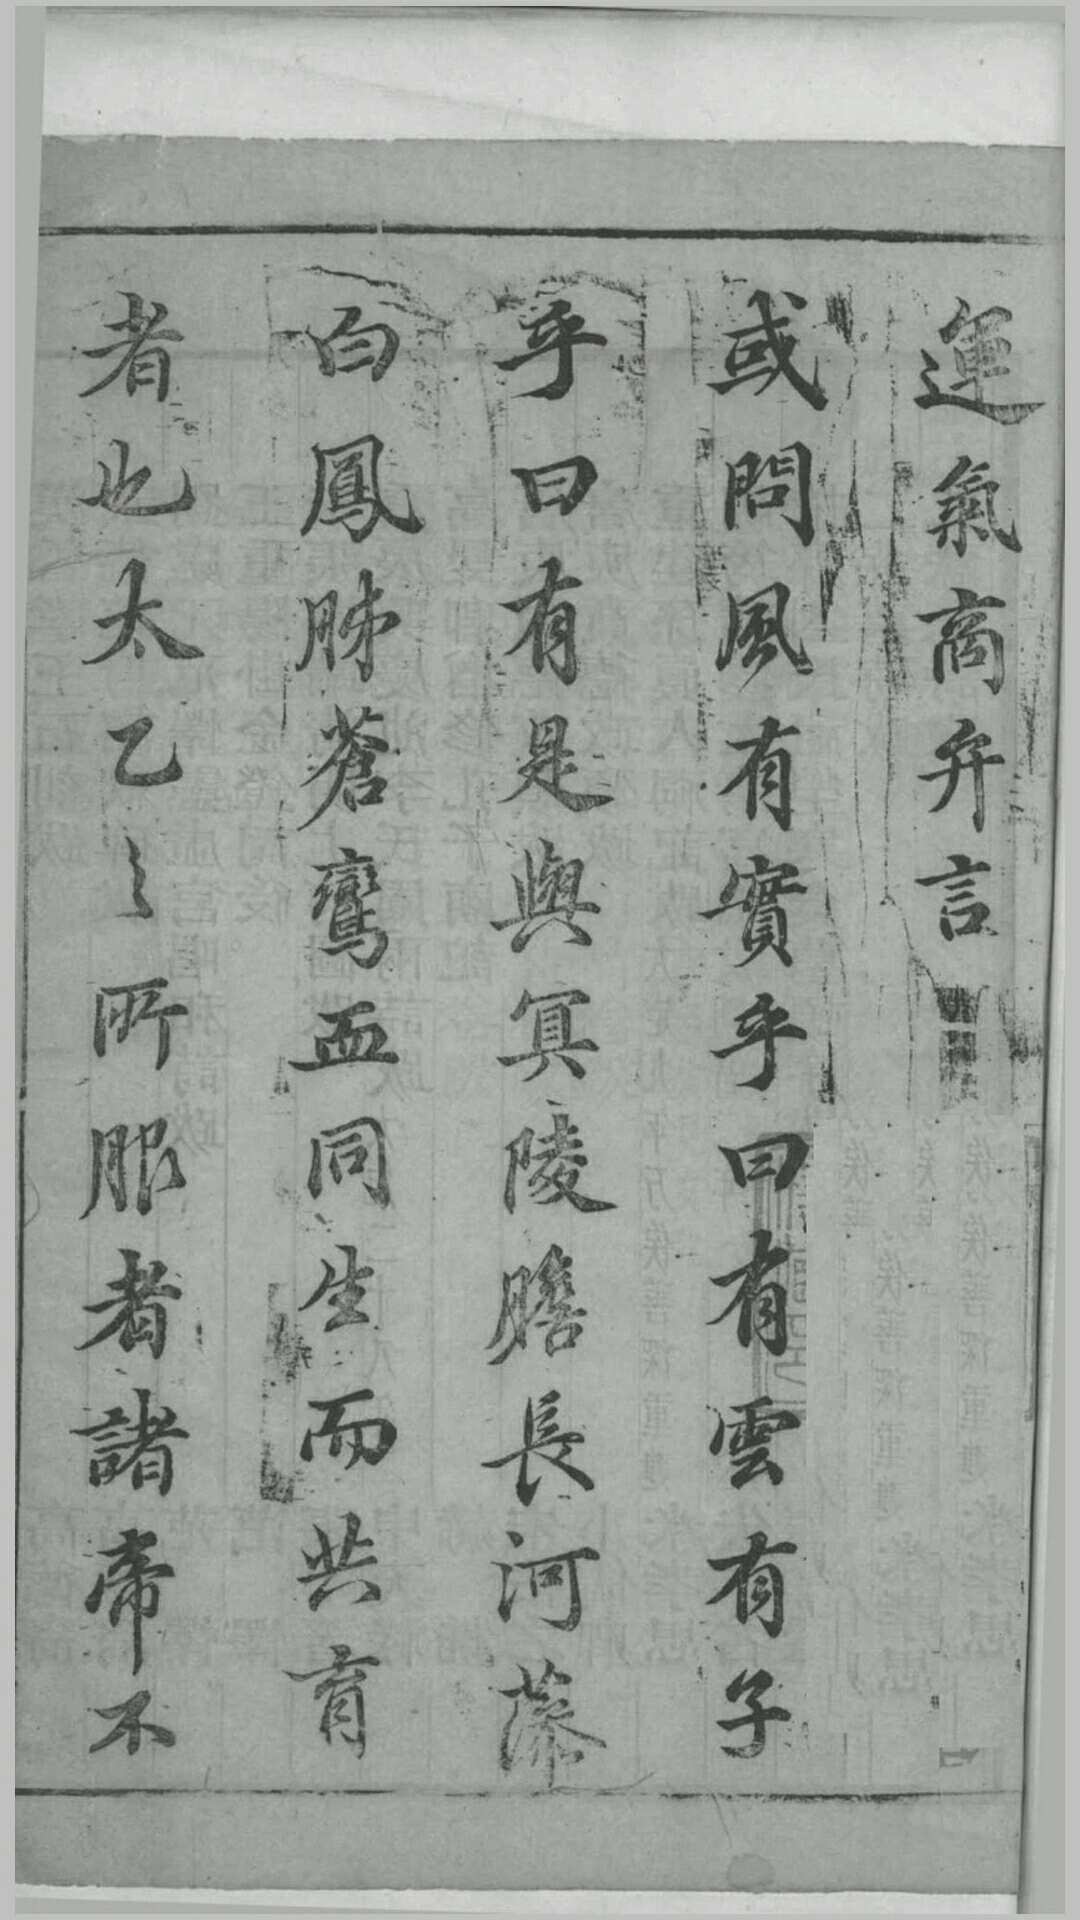 運氣商弁言
或問風有實乎曰有雲有子
乎曰有是與冥陵膽長河藻
白鳳肺蒼鸞血同生而共育
者也太乙之所服者諸帝不